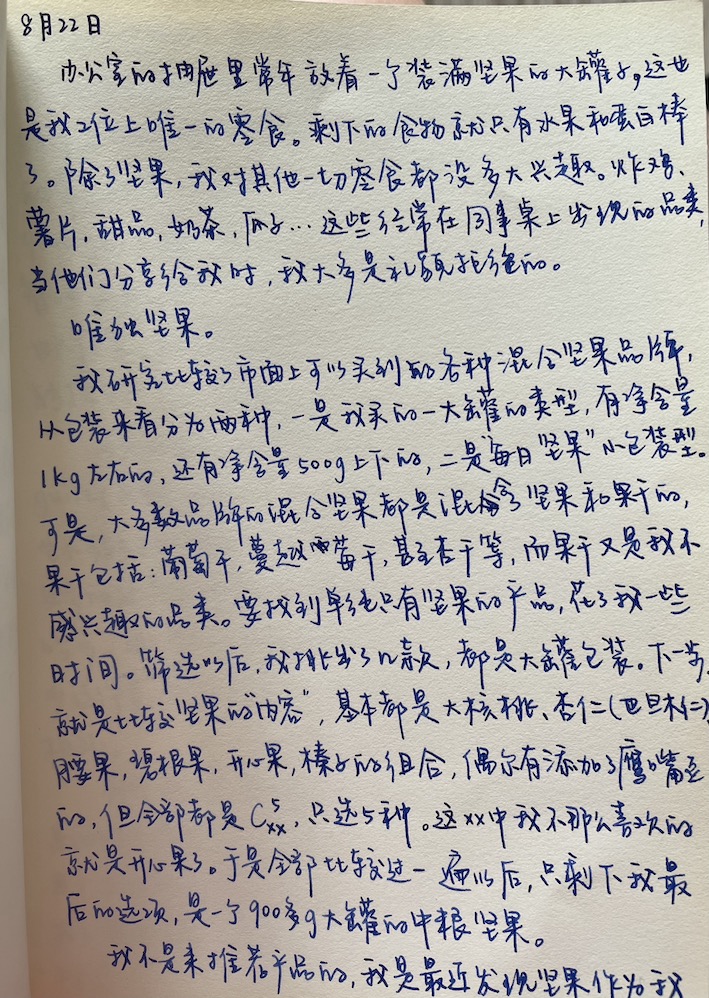 8月22日
办公室的抽屉里常年放着一个装满坚果的大罐子，这也
是我工位上唯一的零食。剩下的食物就只有水果和蛋白棒
了。除了坚果，我对其他一切零食都没多大兴趣。炸鸡、
薯片，甜品，奶茶，瓜子…这些经常在同事桌上出现的品类，
当他们分享给我时，我大多是礼貌拒绝的。
唯独坚果。
我研究比较了市面上可以买到的各种混合坚果品牌，
从包装来看分为两种，一是我买的一大罐的类型，有净含量
1kg左右的，还有净含量500g上下的，二是“每日坚果”小包装型。
可是，大多数品牌的混合坚果都是混合了坚果和果干的，
果干包括：葡萄干，蔓越莓干，甚至杏干等，而果干又是我不
感兴趣的品类。要找到单纯只有坚果的产品，花了我一些
时间。筛选以后，我挑出了几款，都是大罐包装。下一步，
就是比较坚果的“内容”，基本都是大核桃、杏仁（巴旦木仁）
腰果，碧根果，开心果，榛子的组合，偶尔有添加了鹰嘴豆
的，但全部都是C⁵xx，只选5种。这xx中我不那么喜欢的
就是开心果了。于是全部比较过一遍以后，只剩下我最
后的选项，是一个900多g大罐的中粮坚果。
我不是来推荐产品的，我是最近发现坚果作为我